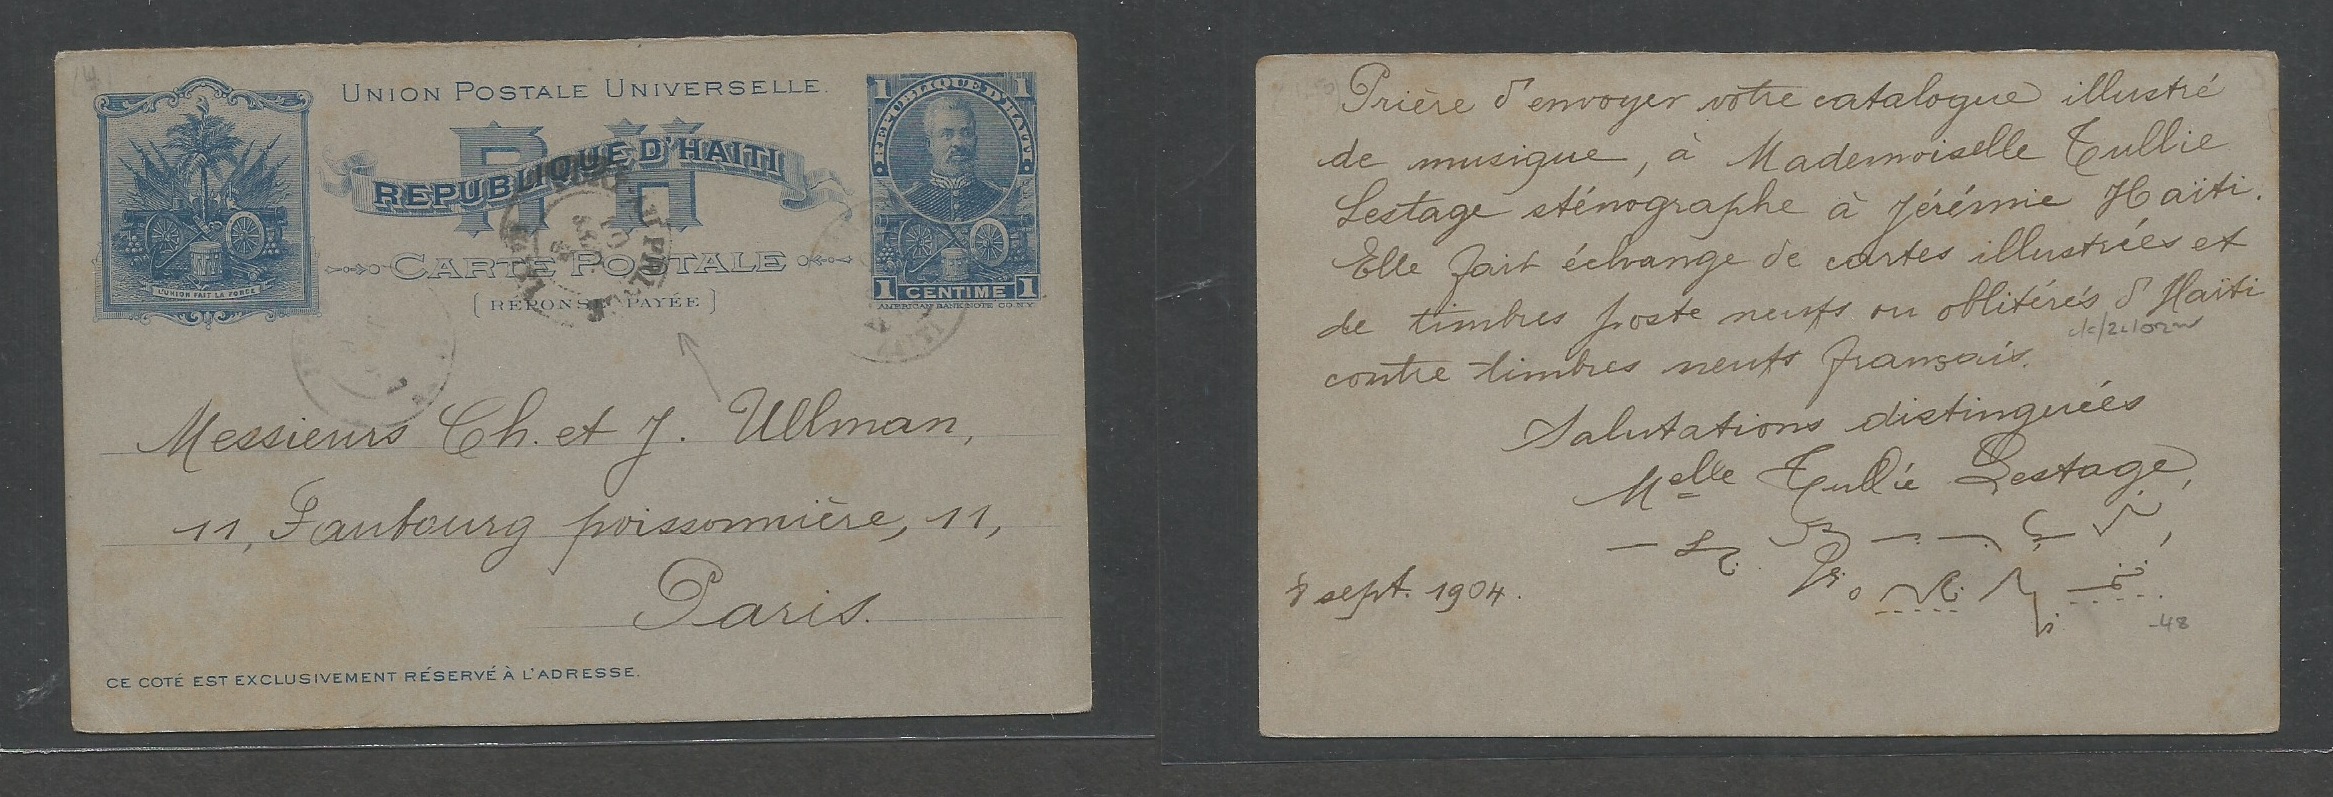 UNION POSTALE UNIVERSELLE.
REPUBLIQUE D'HAITI
RH
CARTE POSTALE
[RÉPONSE PAYÉE]
L'UNION FAIT LA FORCE
1 1
REPUBLIQUE D'HAITI
1 CENTIME 1
AMERICAN BANK NOTE CO. N.Y.
Messieurs Ch. et J. Ullman,
11, Faubourg poissonnière, 11,
Paris.
CE COTÉ EST EXCLUSIVEMENT RÉSERVÉ À L'ADRESSE.
Prière d'envoyer votre catalogue illustré
de musique, à Mademoiselle Tullie
Lestage sténographe à Jérémie Haïti.
Elle fait échange de cartes illustrées et
de timbres poste neufs ou oblitérés d'Haïti
contre timbres neufs français.
Salutations distinguées
Melle Tullie Lestage,
8 sept. 1904.
-48